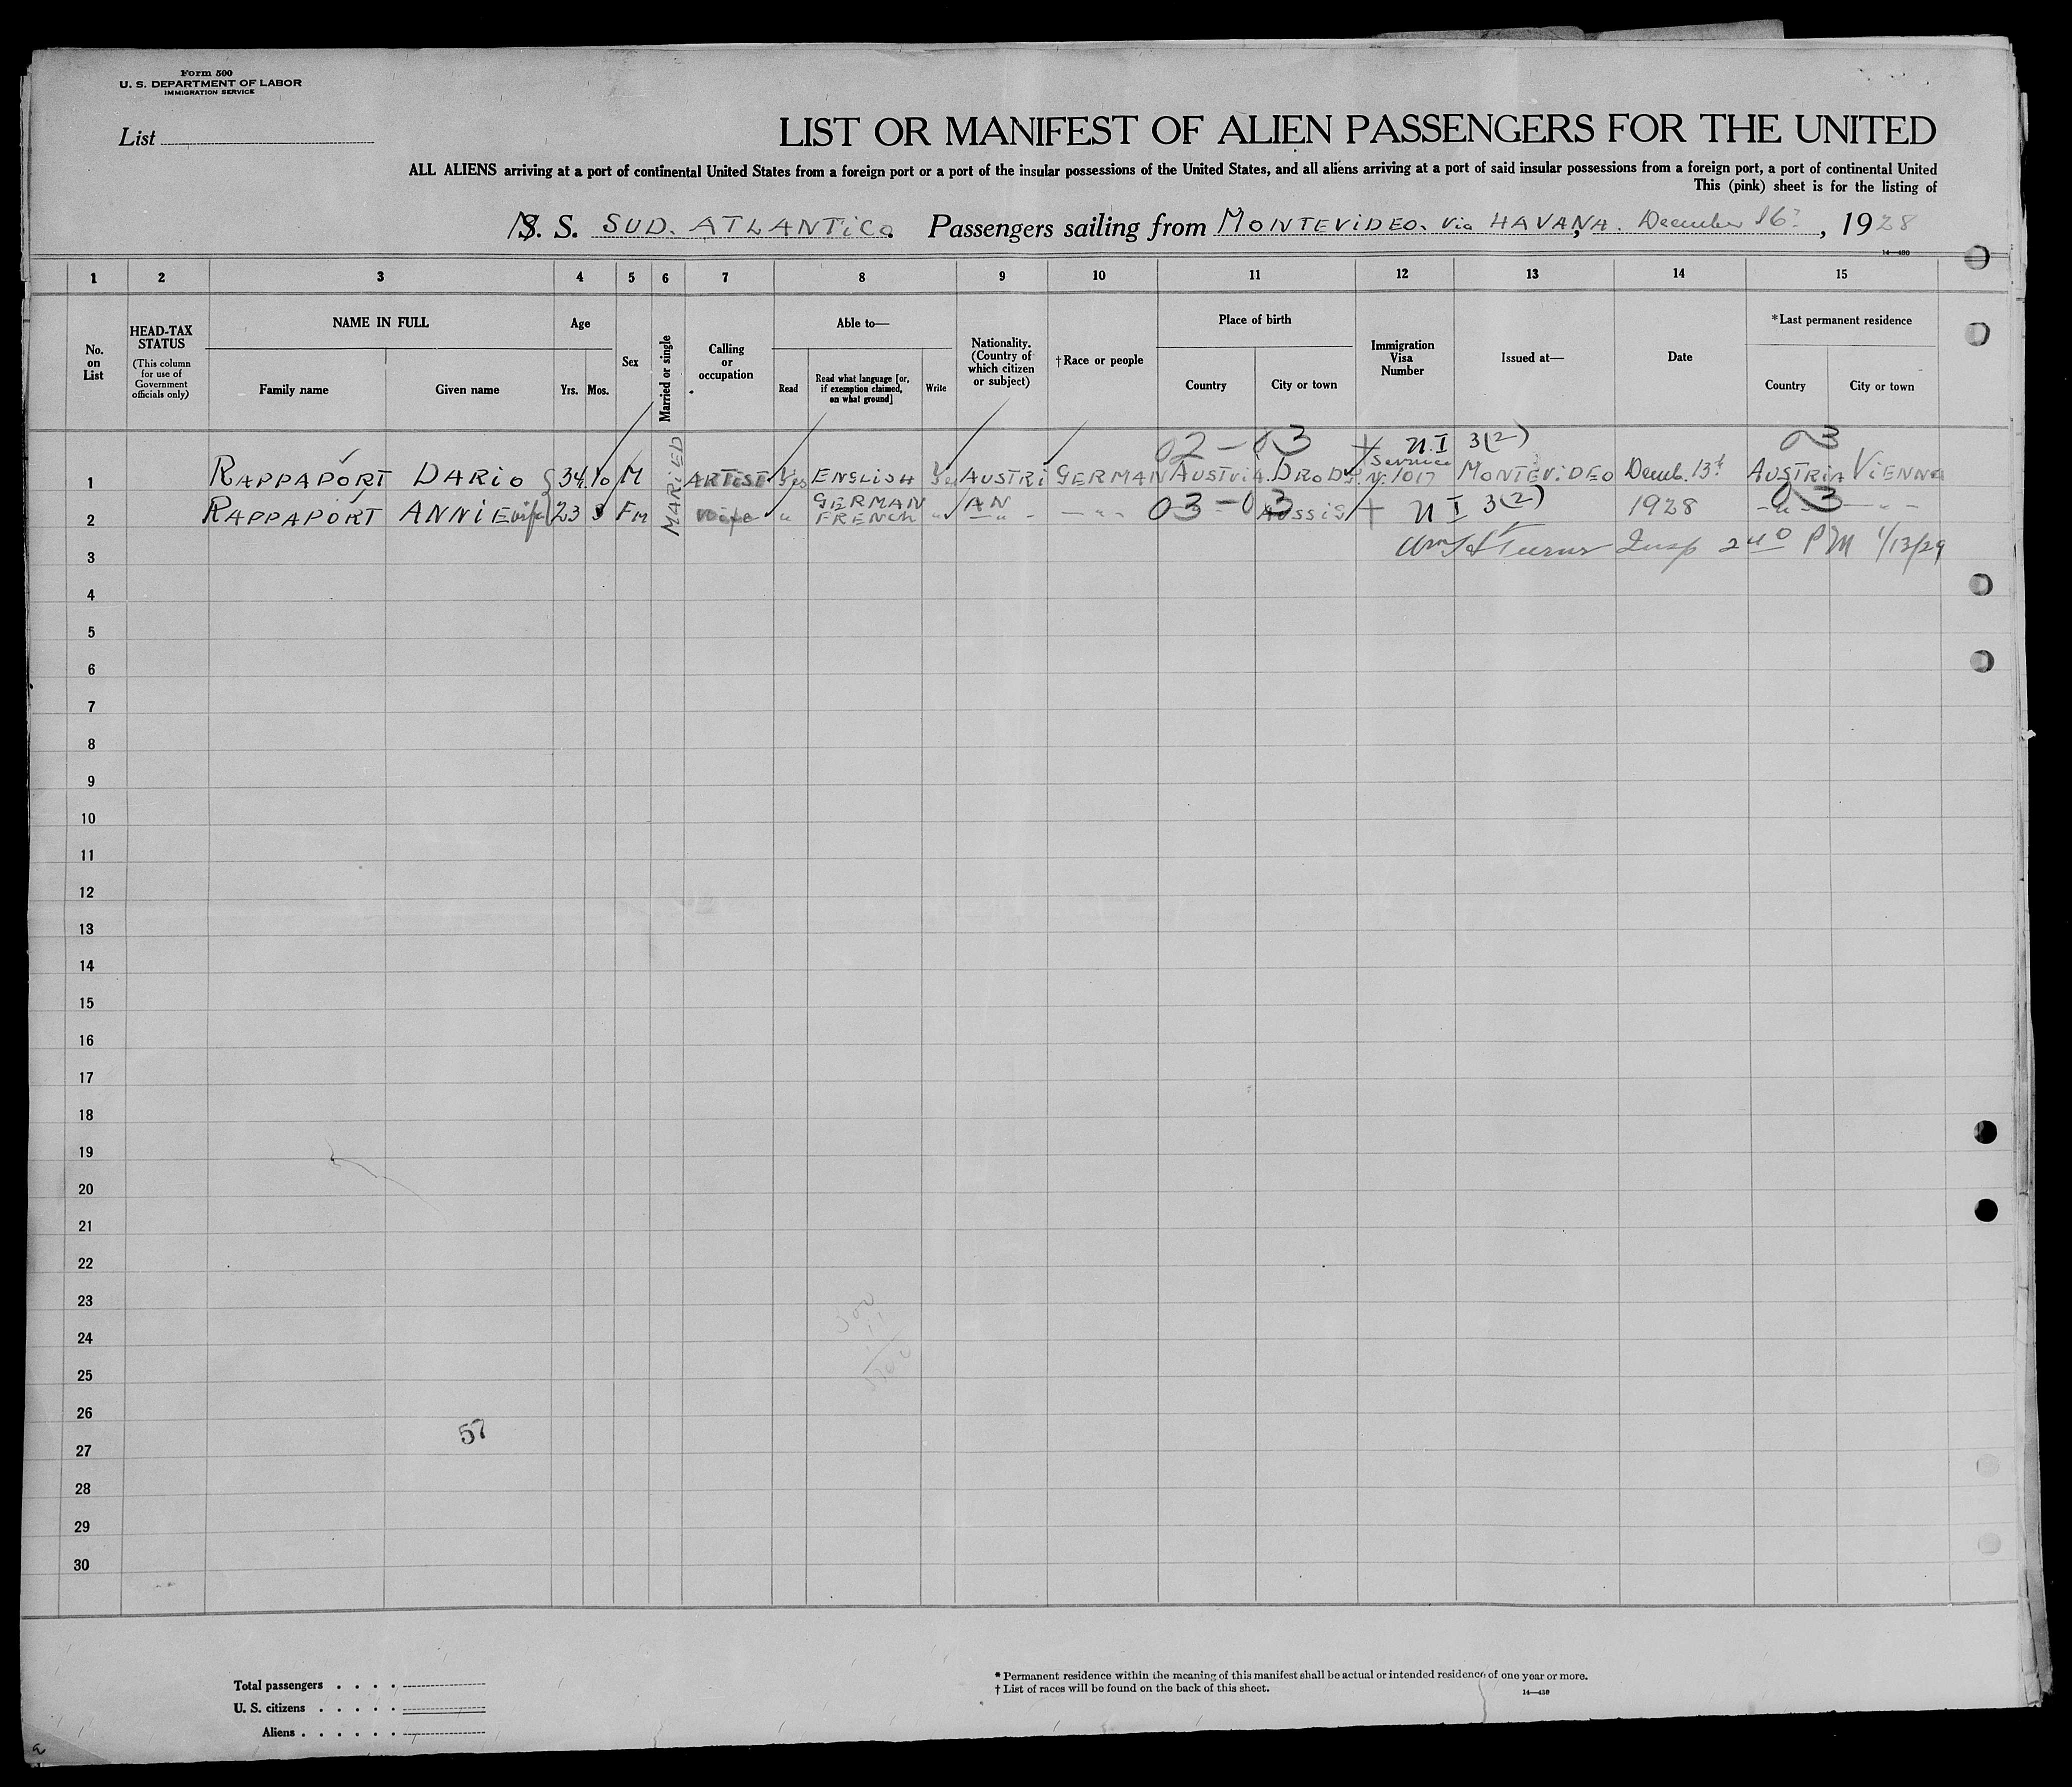 Form 500
U. S. DEPARTMENT OF LABOR
IMMIGRATION SERVICE
List
LIST OR MANIFEST OF ALIEN PASSENGERS FOR THE UNITED
ALL ALIENS arriving at a port of continental United States from a foreign port or a port of the insular possessions of the United States, and all aliens arriving at a port of said insular possessions from a foreign port, a port of continental United
This (pink) sheet is for the listing of
S. S. SUD. ATLANTiCo. Passengers sailing from MONTEViDEO. Via HAVANA. December 16, 1928
14—480
1 2 3 4 5 6 7 8 9 10 11 12 13 14 15
No. on List
HEAD-TAX STATUS
(This column for use of Government officials only)
NAME IN FULL
Family name Given name
Age
Yrs. Mos.
Sex
Married or single
Calling or occupation
Able to—
Read
Read what language [or, if exemption claimed, on what ground]
Write
Nationality. (Country of which citizen or subject)
†Race or people
Place of birth
Country City or town
Immigration Visa Number
Issued at—
Date
*Last permanent residence
Country City or town
02-03 N.I 3(2) 03
1 RAPPAPORT DARiO 34 10 M MARiED ARTiST Yes ENGLiSH Yes AUSTRi GERMAN AUSTRiA. Service MONTEViDEO Decemb. 13th AUSTRiA ViENNA
GERMAN AN
2 RAPPAPORT ANNiE wife 23 Fm wife " FRENCH " " " 03-03 N I 3(2) 1928 " 03 "
3 Insp 2 40 PM 1/13/29
4
5
6
7
8
9
10
11
12
13
14
15
16
17
18
19
20
21
22
23
24
25
26
57
27
28
29
30
Total passengers . . . .
U. S. citizens . . . . .
Aliens . . . . .
* Permanent residence within the meaning of this manifest shall be actual or intended residence of one year or more.
† List of races will be found on the back of this sheet.
14—430